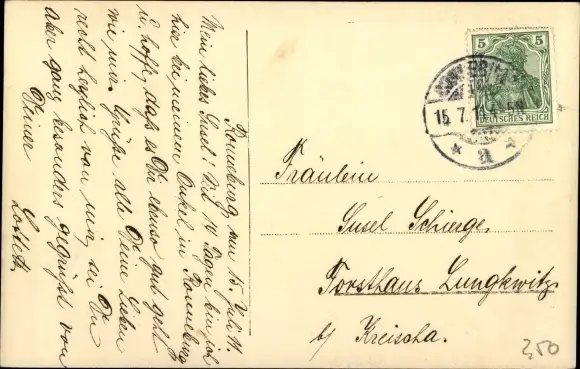 Ronneburg, den 15. Juli 11.
Mein liebes Susel! Seit 14 Tagen bin ich
hier bei meinem Onkel in Ronneburg
u. hoffe, daß es Dir ebenso gut geht
wie mir. Grüße alle Deine Lieben
recht herzlich von mir, sei Du
aber ganz besonders gegrüßt von
Deiner
Lotte
5 5
DEUTSCHES REICH
15.7.
* a *
Fräulein
Susel Schierge,
Forsthaus Lungkwitz
b/ Kreischa.
3,50